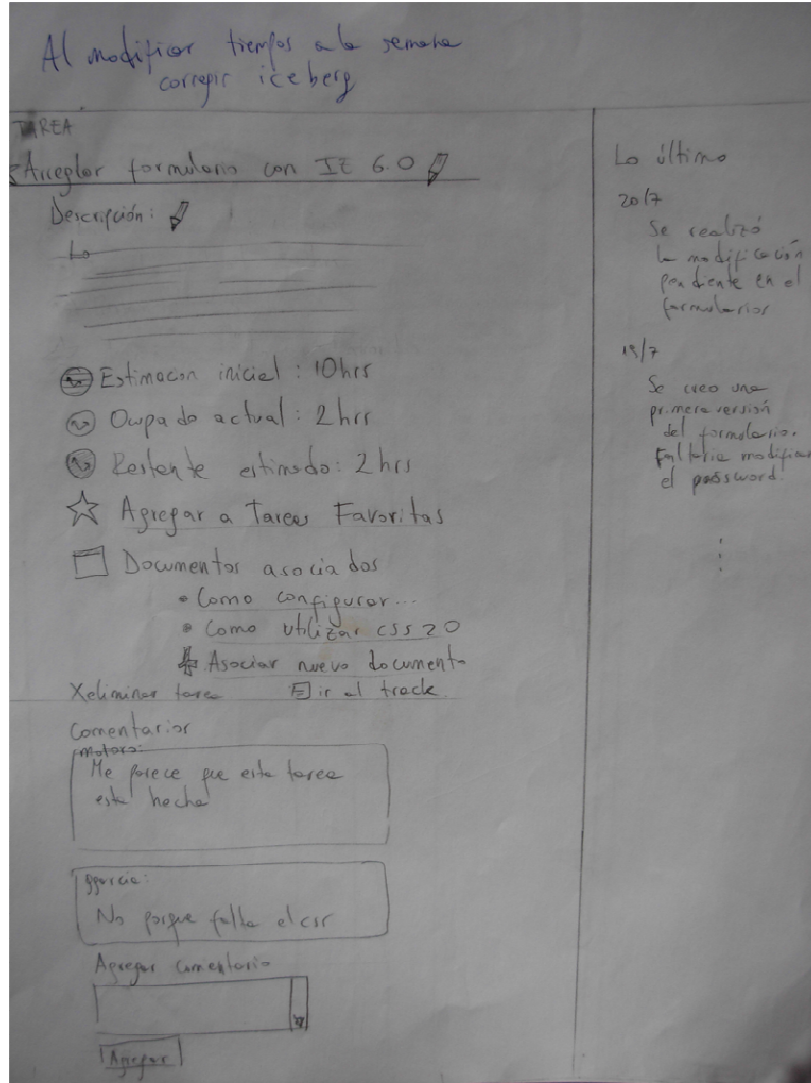 Al modificar tiempos a la semana
corregir iceberg
TAREA
Arreglar formulario con IE 6.0
Descripción:
Lo
Estimacion inicial: 10hrs
Ocupado actual: 2hrs
Restante estimado: 2hrs
Agregar a Tareas Favoritas
Documentos asociados
• Como configurar...
• Como utilizar css 2.0
Asociar nuevo documento
X eliminar tarea ir al track
Comentarios
Me parece que esta tarea
esta hecha
ggarcia:
No porque falta el css
Agregar comentario
Agregar
Lo último
20/7
Se realizó
la modificación
pendiente en el
formularios
19/7
Se creo una
primera versión
del formulario.
Faltaria modificar
el password.